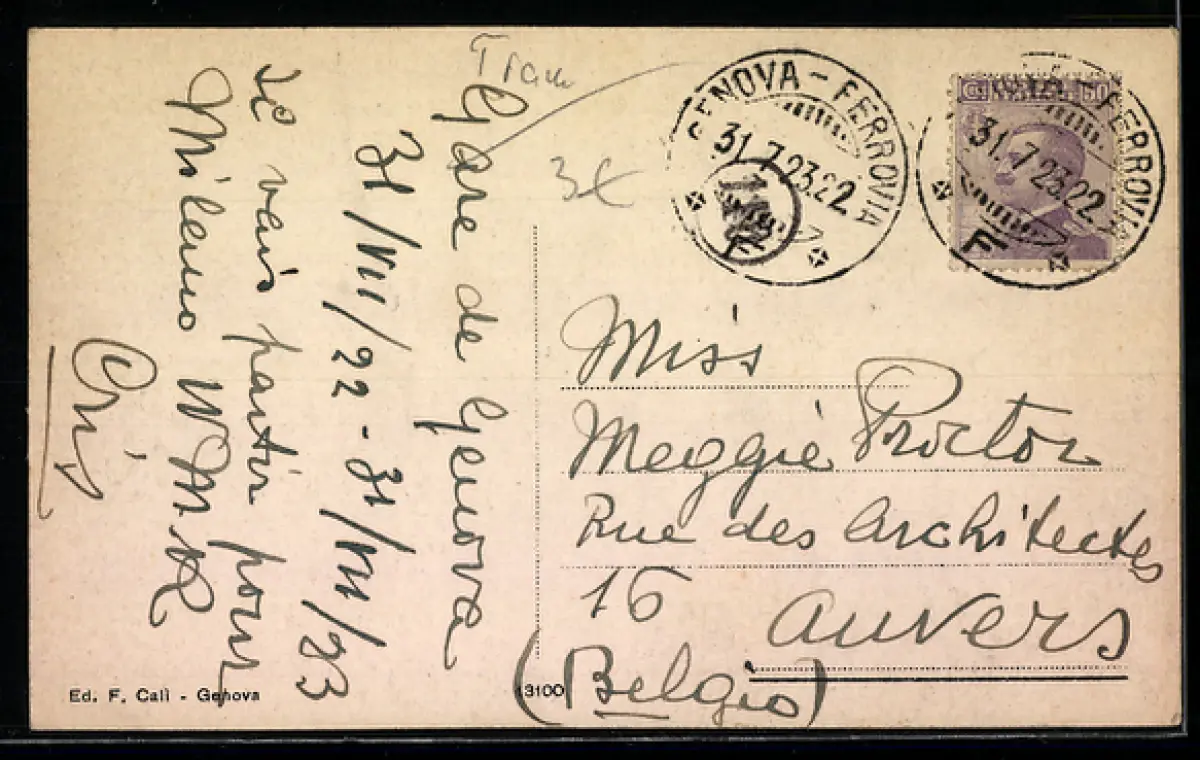 Tram
Gare de Genova
31/VII/22-31/VII/23
Je vais partir pour
Milano
Cris
3£
GENOVA - FERROVIA
31.7.23.22
F
GENOVA - FERROVIA
31.7.23.22
F
50
Miss
Meggie Proctor
Rue des Architectes
16 Anvers
(Belgio)
Ed. F. Calì - Genova
13100